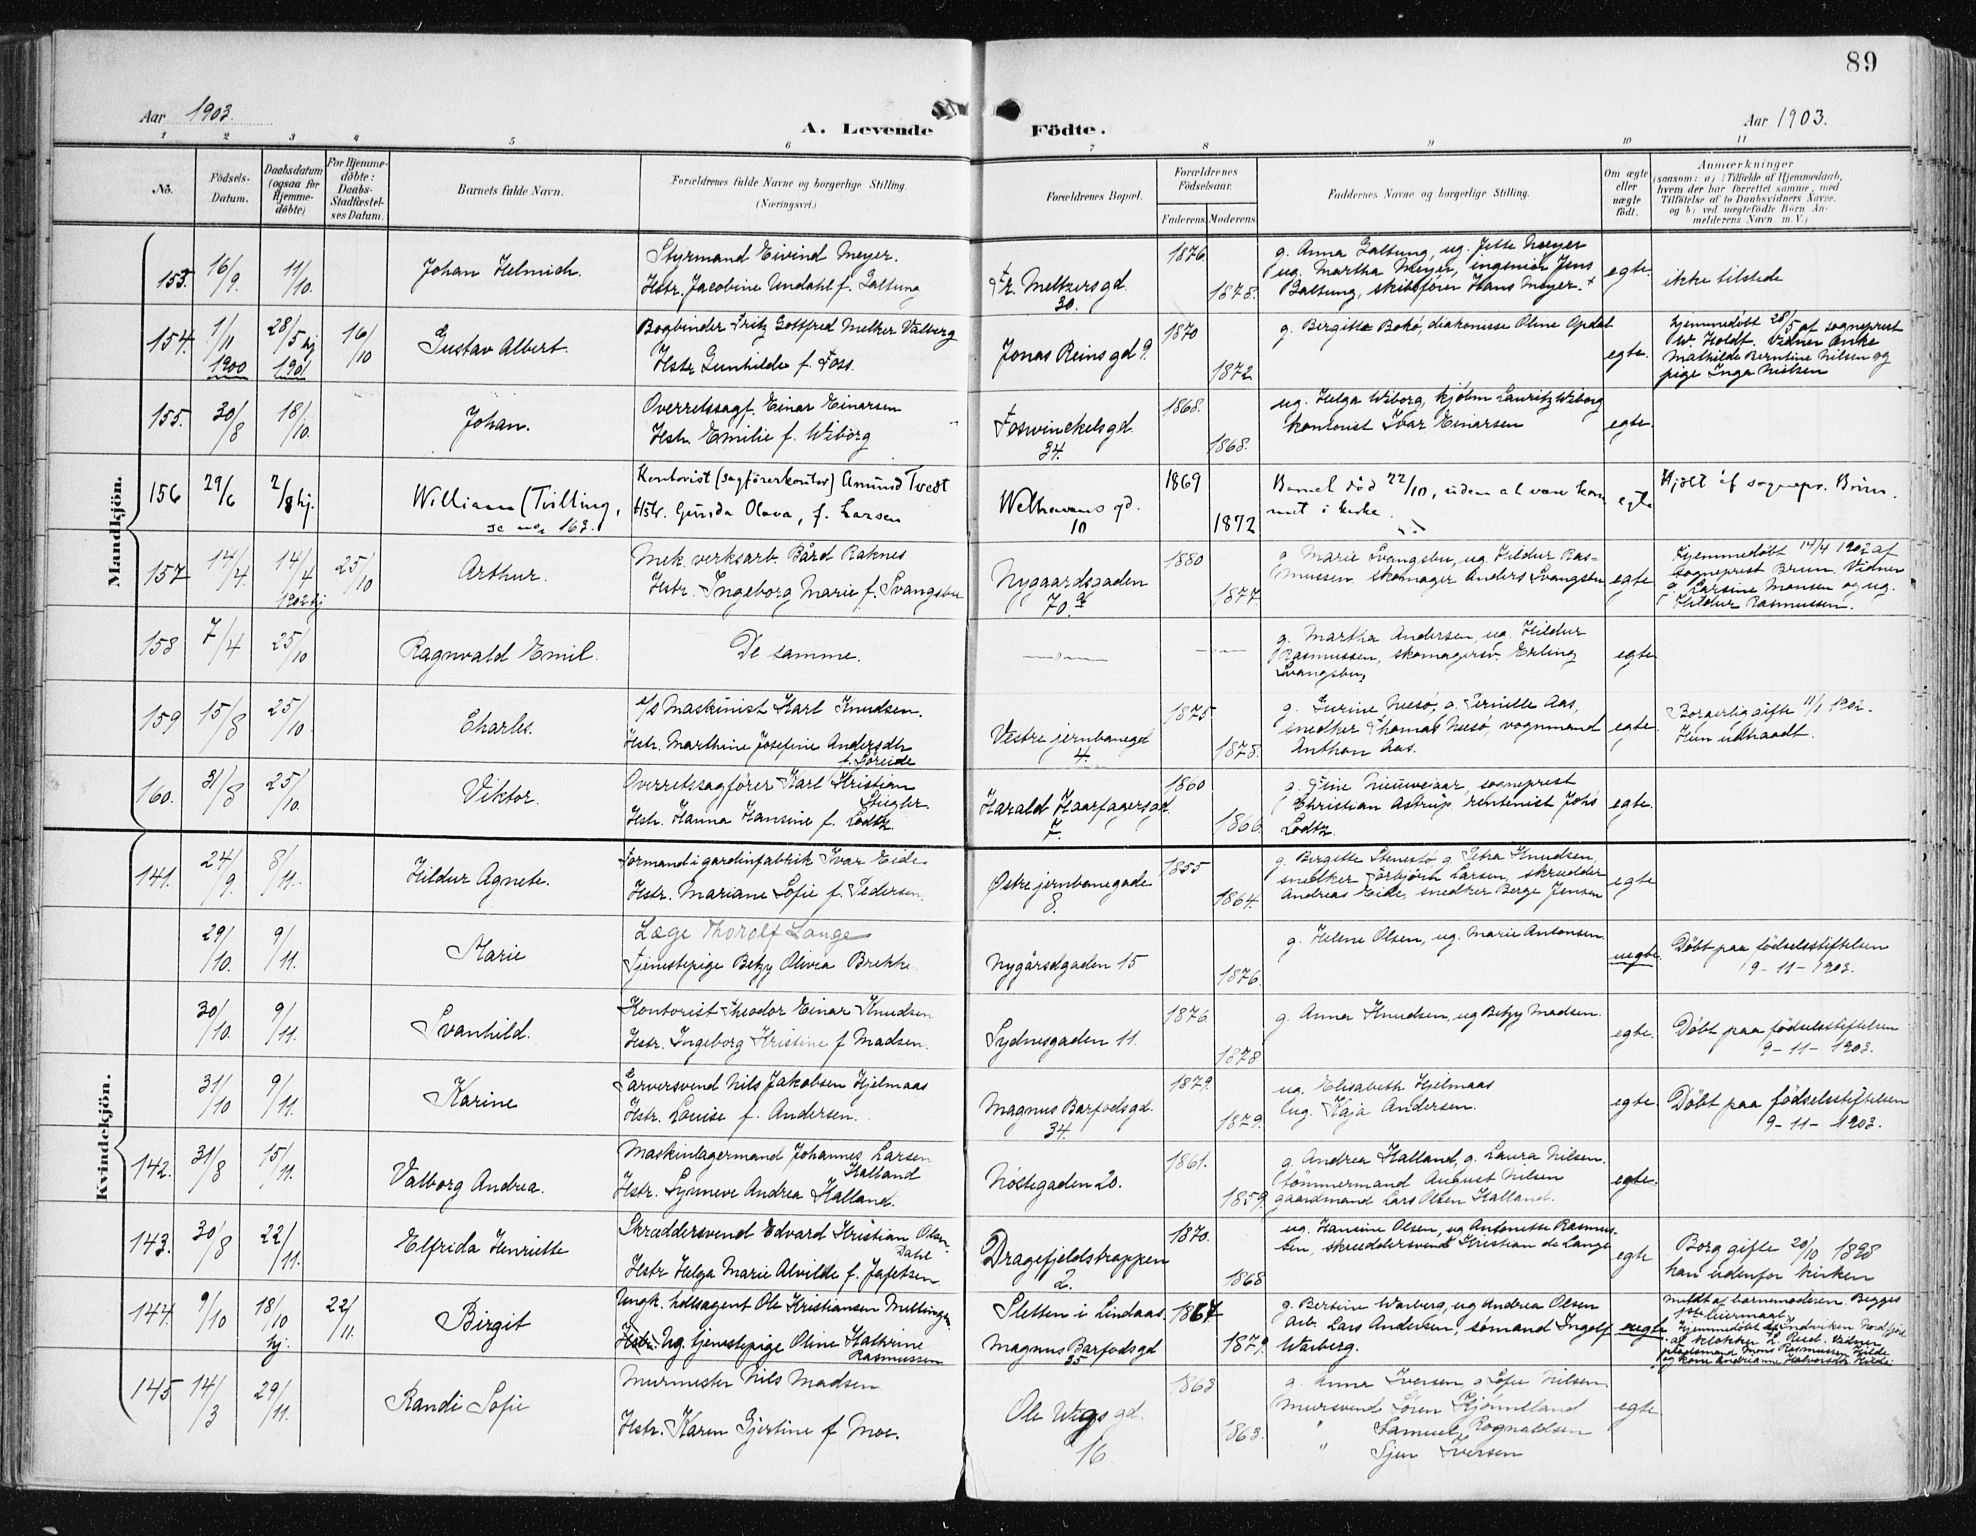 89
Aar 1903.
A. Levende Födte.
Aar 1903.
1 2 3 4 5 6 7 8 9 10 11
No.
Födsels-
Datum.
Daabsdatum
(ogsaa for
Hjemme-
døbte)
For Hjemme-
döbte:
Daabs-
Stadfæstel-
ses Datum.
Barnets fulde Navn.
Forældrenes fulde Navne og borgerlige Stilling
(Næringsvei.)
Forældrenes Bopæl.
Forældrenes
Fødselsaar.
Faderens. Moderens.
Faddernes Navne og borgerlige Stilling.
Om ægte
eller
uægte
födt.
Anmærkninger
(saasom: a) i Tilfælde af Hjemmedaab,
hvem der har forrettet samme, med
Tilföielse af to Daabsvidners Navne,
og b) ved uægtefödte Börn An-
melderens Navn m. V.)
Mandkjön.
153. 16/9. 11/10. Johan Helmich.
Styrmand Eivind Meyer.
Hstr. Jacobine Undahl f. Galtung
Fr. Meltzersgd.
30.
1876
1878.
g. Anna Galtung, ug. Jette Meyer
ug. Martha Meyer, ingeniør Jens
Galtung, skibsfører Hans Meyer.
egte.
ikke tilstede
154. 1/11 1900 28/5 hj 1901 16/10 Gustav Albert.
Bogbinder Fritz Gottfred Melker Valberg
Hstr Gunhilde f. Foss.
Jonas Reinsgd 9.
1870
1872
g. Birgitte Bokø, diakonisse Oline Apdal
egte.
hjemmedøbt 28/5 af sogneprest
W. Holdt. Vidner enke
Mathilde Berntine Nilsen og
pige Inga Nielsen
155. 30/8 18/10. Johan.
Overretssagf. Einar Einarsen
Hstr. Emilie f. Wiborg
Foswinckelsgd.
34.
1868.
1868.
ug. Helga Wiborg, kjøbm Lauritz Wiborg
kontorist Ivar Einarsen
egte.
156 29/6 2/8 hj. William (Tvilling,
se nr. 163.
Kontorist (sagførerkontor) Amund Tvedt
Hstr. Gurida Olava, f. Larsen
Welhavens gd.
10
1869
1872
Barnet død 22/10, uden at være kom-
met i kirke.
egte
Hjdøbt af sognepr. Brun.
157 14/4. 14/4 1902 hj 25/10 Arthur.
Mek. verksarb. Bård Raknes
Hstr. Ingeborg Marie f. Svangsbu
Nygaardsgaden
70 a
1880
1877
g. Marie Svangsbu, ug. Hildur Ras-
mussen, skomager Anders Svangsbu
egte
Hjemmedøbt 14/4 1902 af
sogneprest Brun. Vidner
g. Larsine Monsen og ug.
Hildur Rasmussen.
158 7/4 25/10 Ragnvald Emil.
De samme.
— " —
g. Martha Andersen, ug. Hildur
Rasmussen, skomagersv. Erling
Svangsbu
egte
159 15/8 25/10. Charles.
d/s Maskinist Karl Knudsen.
Hstr. Marthine Josefine Andersdtr
f. Søreide
Vestre jernbanegd
4.
1875
1878.
g. Gurine Nesø, g. Pernille Aas,
snedker Thomas Nesø, vognmand
Anthon Aas.
egte.
Borgerlig gifte 11/1 1902.
Hun udtraadt.
160. 31/8 25/10. Viktor.
Overretssagfører Karl Kristian
Stiegler.
Hstr. Hanna Hansine f. Lodtz
Harald Haarfagersgd
7.
1860
1866
g. Fine Nieuwejaar, sogneprest
Christian Astrup, rentenist Johs
Lodtz
egte.
Kvindekjön.
141. 24/9. 8/11. Hildur Agnete.
Formand i gardinfabrik Ivar Eide
Hstr. Mariane Sofie f. Pedersen.
Østre jernbanegade
8.
1855
1864.
g. Birgitte Stensø, g. Petra Knudsen,
snedker Torbjørn Larsen, skrædder
Andreas Eide, snedker Berge Jensen
egte
29/10. 9/11. Marie
Læge Thorolf Lange
Tjenestepige Betzy Olivia Brekke.
Nygårdsgaden 15
1876.
g. Helene Olsen, ug. Marie Antonsen.
uegte.
Døbt paa fødselsstiftelsen
9-11-1903.
30/10. 9/11. Svanhild.
Kontorist Theodor Einar Knudsen
Hstr. Ingeborg Kristine f Madsen.
Sydnesgaden 11.
1876
1878
g. Anna Knudsen, ug Betzy Madsen.
egte.
Døbt paa fødselsstiftelsen
9-11-1903.
31/10 9/11. Karine
Garversvend Nils Jakobsen Hjelmaas
Hstr. Louise f. Andersen.
Magnus Barfodsgd.
34.
1879.
1879.
ug. Elisabeth Hjelmaas
ug. Kaja Andersen.
egte.
Døbt paa fødselsstiftelsen
9-11-1903.
142. 31/8 15/11. Valborg Andrea.
Maskinlagermand Johannes Larsen
Halland
Hstr. Synneve Andrea Halland.
Nøstegaden 20.
1861.
1859.
g. Andrea Halland, g. Laura Nilsen.
tømmermand August Nilsen
gaardmand Lars Olsen Halland.
egte.
143. 30/8 22/11. Elfrida Henriette
Skræddersvend Edvard Kristian Olsen
Dahl
Hstr Helga Marie Alvilde f. Jafetsen
Dragefjeldstrappen
2.
1870.
1868
ug. Hansine Olsen, ug Antonette Rasmus-
sen, skræddersvend Kristian de Lange
egte
Borg gifte 20/10 1898
han udenfor kirken
144. 9/10 18/10 hj. 22/11. Birgit
Ungk. handelsagent Ole Kristiansen Mellingen
Hstr. Ug. tjenestepige Oline Kathrine
Rasmussen
Sletten i Lindaas
Magnus Barfodsgd
35
1867
1879.
g. Bertine Warberg, ug Andrea Olsen
Arb. Lars Andersen, sømand Ingolf
Warberg.
uegte
Meldt af barnemoderen. Begges
1ste leiermaal.
Hjemmedøbt i Indviken Nordfjord
af klokker L. Reed. Vidner
pladsmand Mons Rasmussen Hilde
og kone Andrianne Halvorsdtr Hilde
145 14/3 29/11. Randi Sofie
Murmester Nils Madsen
Hstr. Karen Gjertine f Moe.
Ole Wigs gd.
16
1863
1863.
g. Anna Iversen, g Sofie Nilsen.
Mursvend Søren Kjønneland
" Samuel Rognaldsen
" Sjur Iversen
egte.